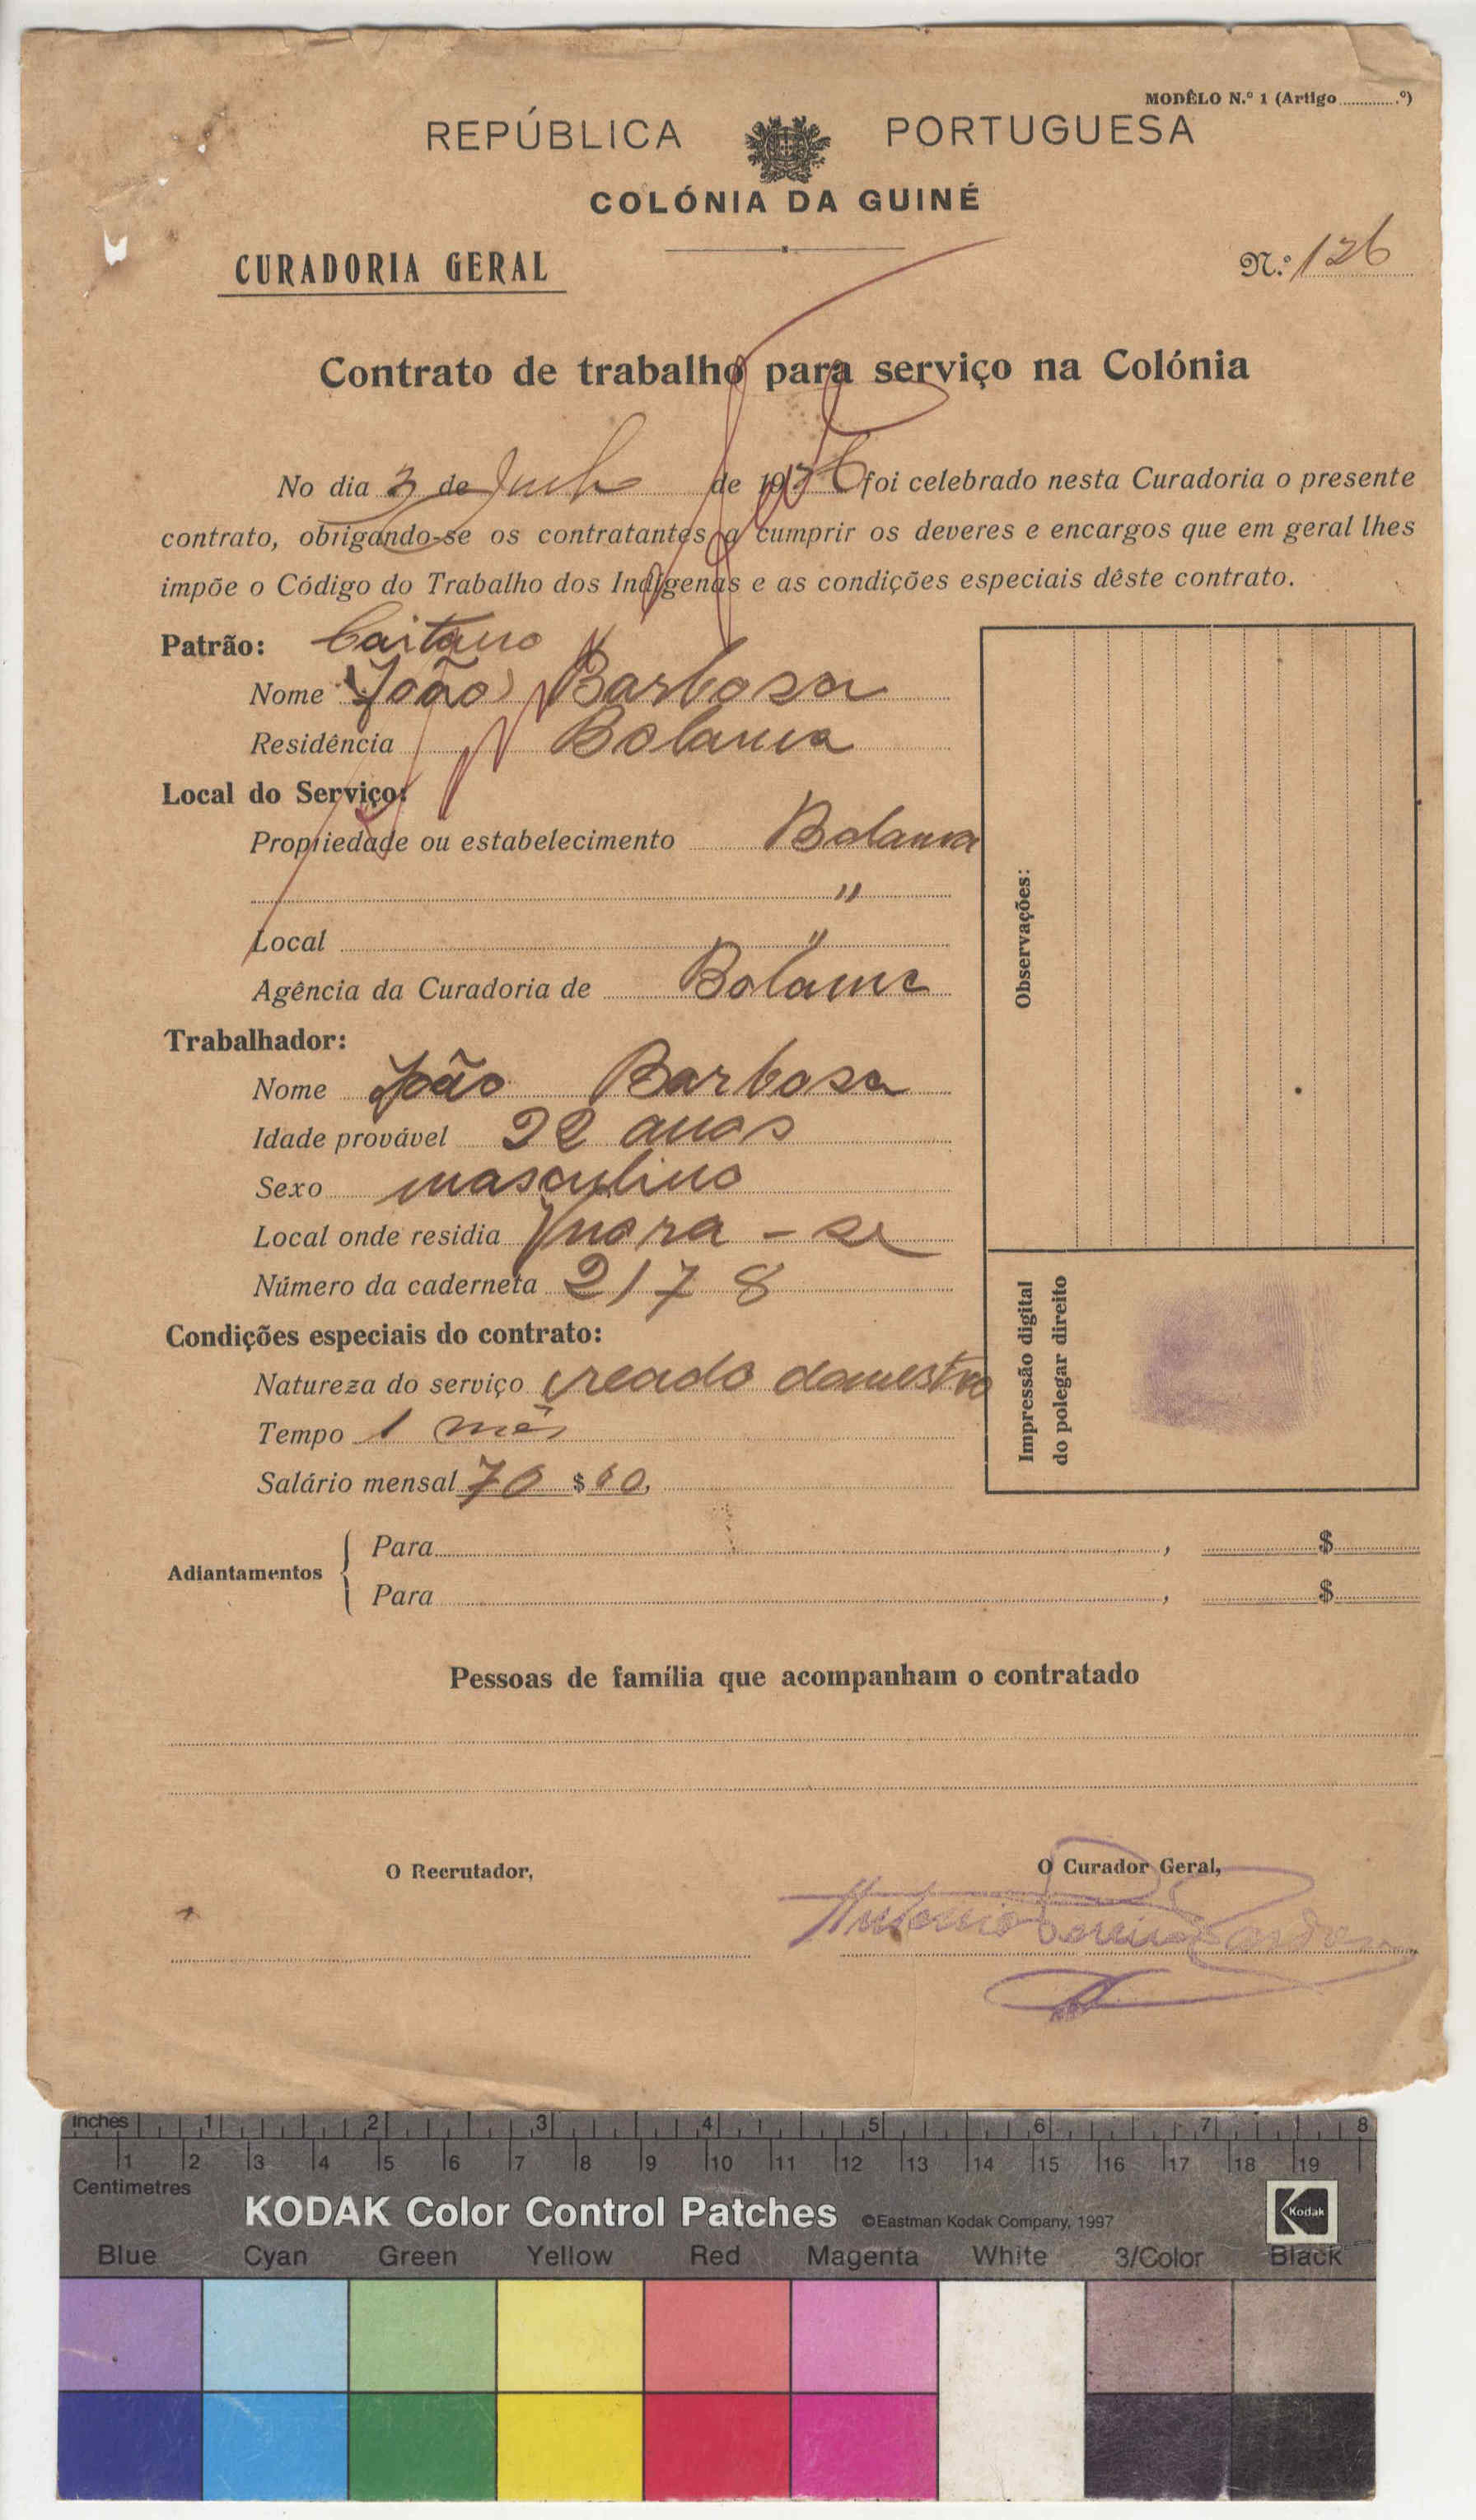 MODÊLO N.º 1 (Artigo ............º)
REPÚBLICA PORTUGUESA
COLÓNIA DA GUINÉ
CURADORIA GERAL
N.º 126
Contrato de trabalho para serviço na Colónia
No dia 3 de de 193 foi celebrado nesta Curadoria o presente
contrato, obrigando-se os contratantes a cumprir os deveres e encargos que em geral lhes
impõe o Código do Trabalho dos Indígenas e as condições especiais dêste contrato.
Patrão: Caitano
Nome João Barbosa
Residência Bolama
Local do Serviço:
Propriedade ou estabelecimento Bolama
"
Local "
Agência da Curadoria de Bolama
Trabalhador:
Nome João Barbosa
Idade provável 22 anos
Sexo masculino
Local onde residia
Número da caderneta 2178
Condições especiais do contrato:
Natureza do serviço creado domestico
Tempo 1 mês
Salário mensal 70 $ 00,
Adiantamentos
Para , $
Para , $
Observações:
Impressão digital
do polegar direito
Pessoas de família que acompanham o contratado
O Recrutador,
O Curador Geral,
Antonio Pereira Cardoso
Inches 1 2 3 4 5 6 7 8
1 2 3 4 5 6 7 8 9 10 11 12 13 14 15 16 17 18 19
Centimetres
KODAK Color Control Patches ©Eastman Kodak Company, 1997 Kodak
Blue Cyan Green Yellow Red Magenta White 3/Color Black